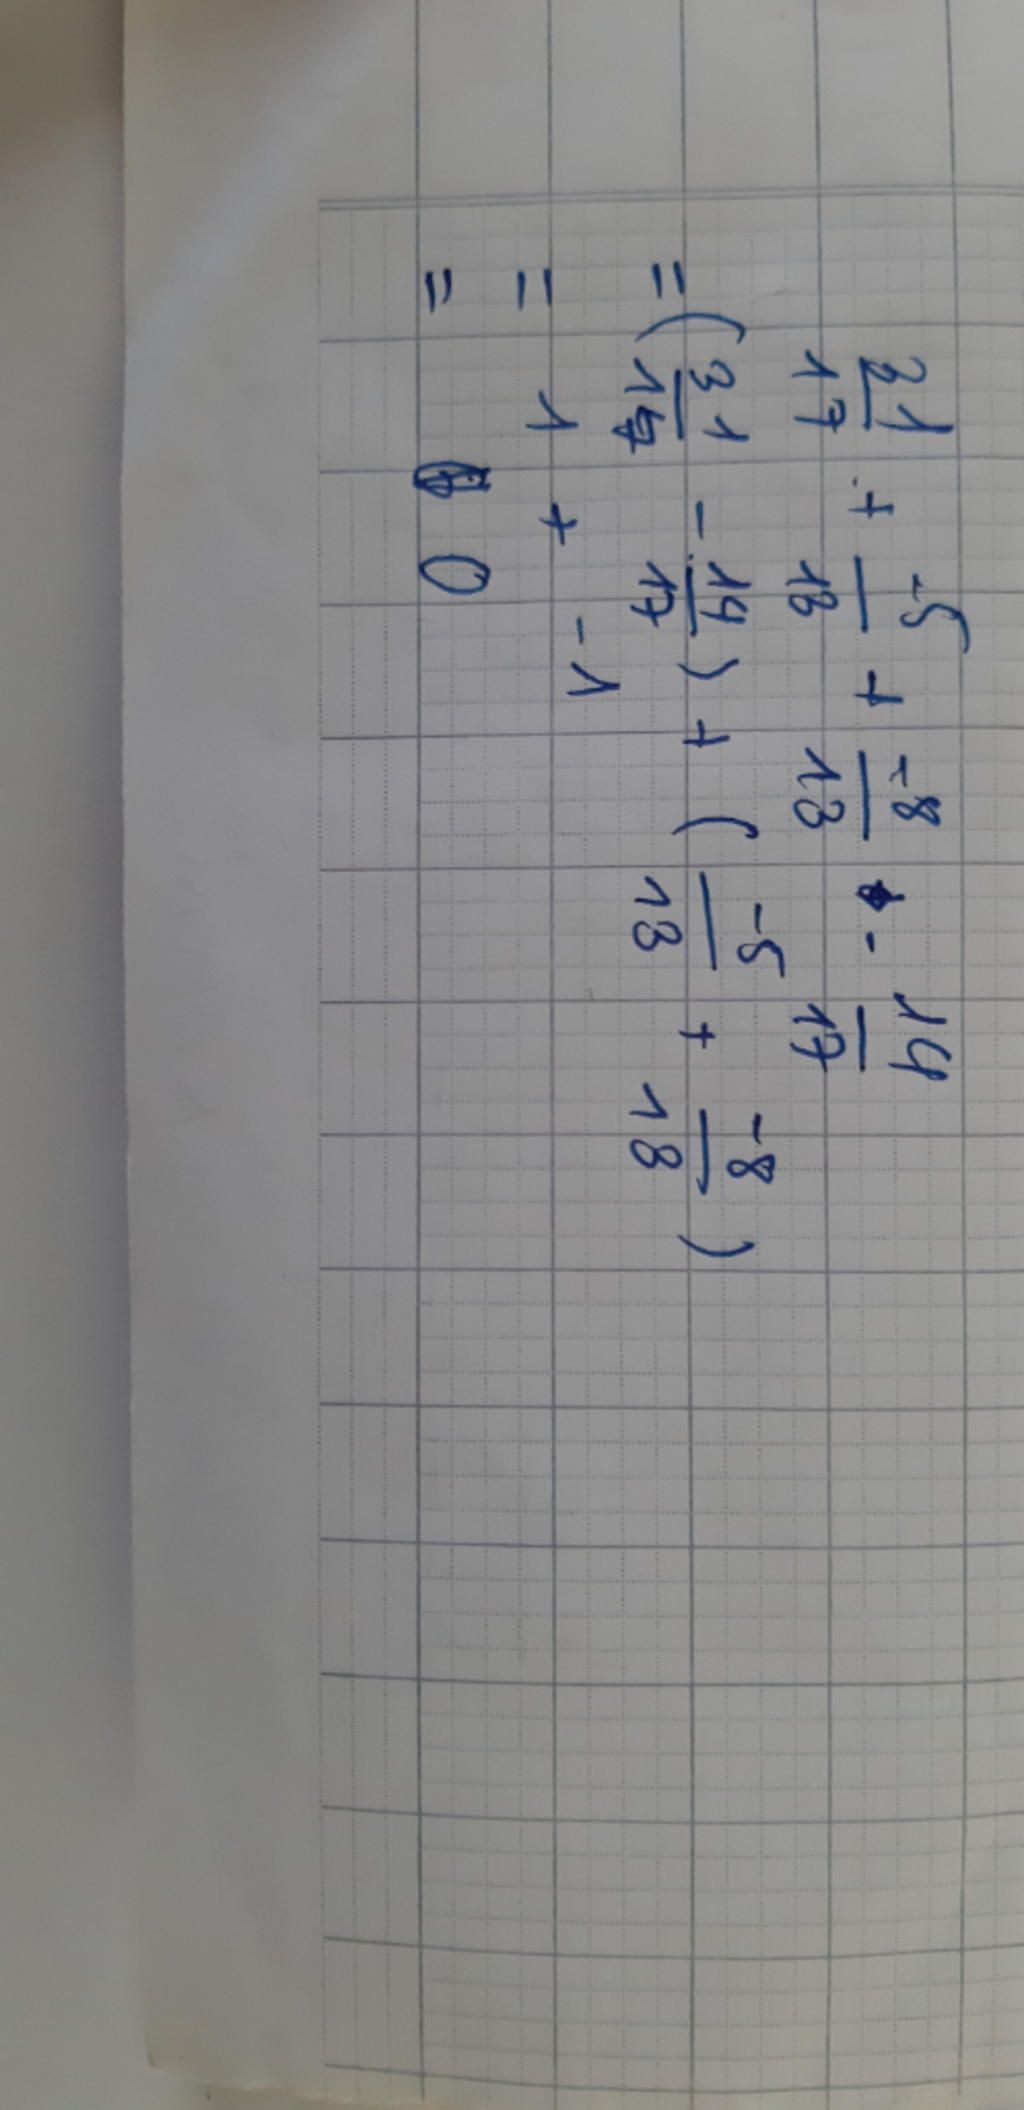 31/17 + -5/13 + -8/13 - 14/17
= (31/17 - 14/17) + (-5/13 + -8/13)
= 1 + -1
= 0